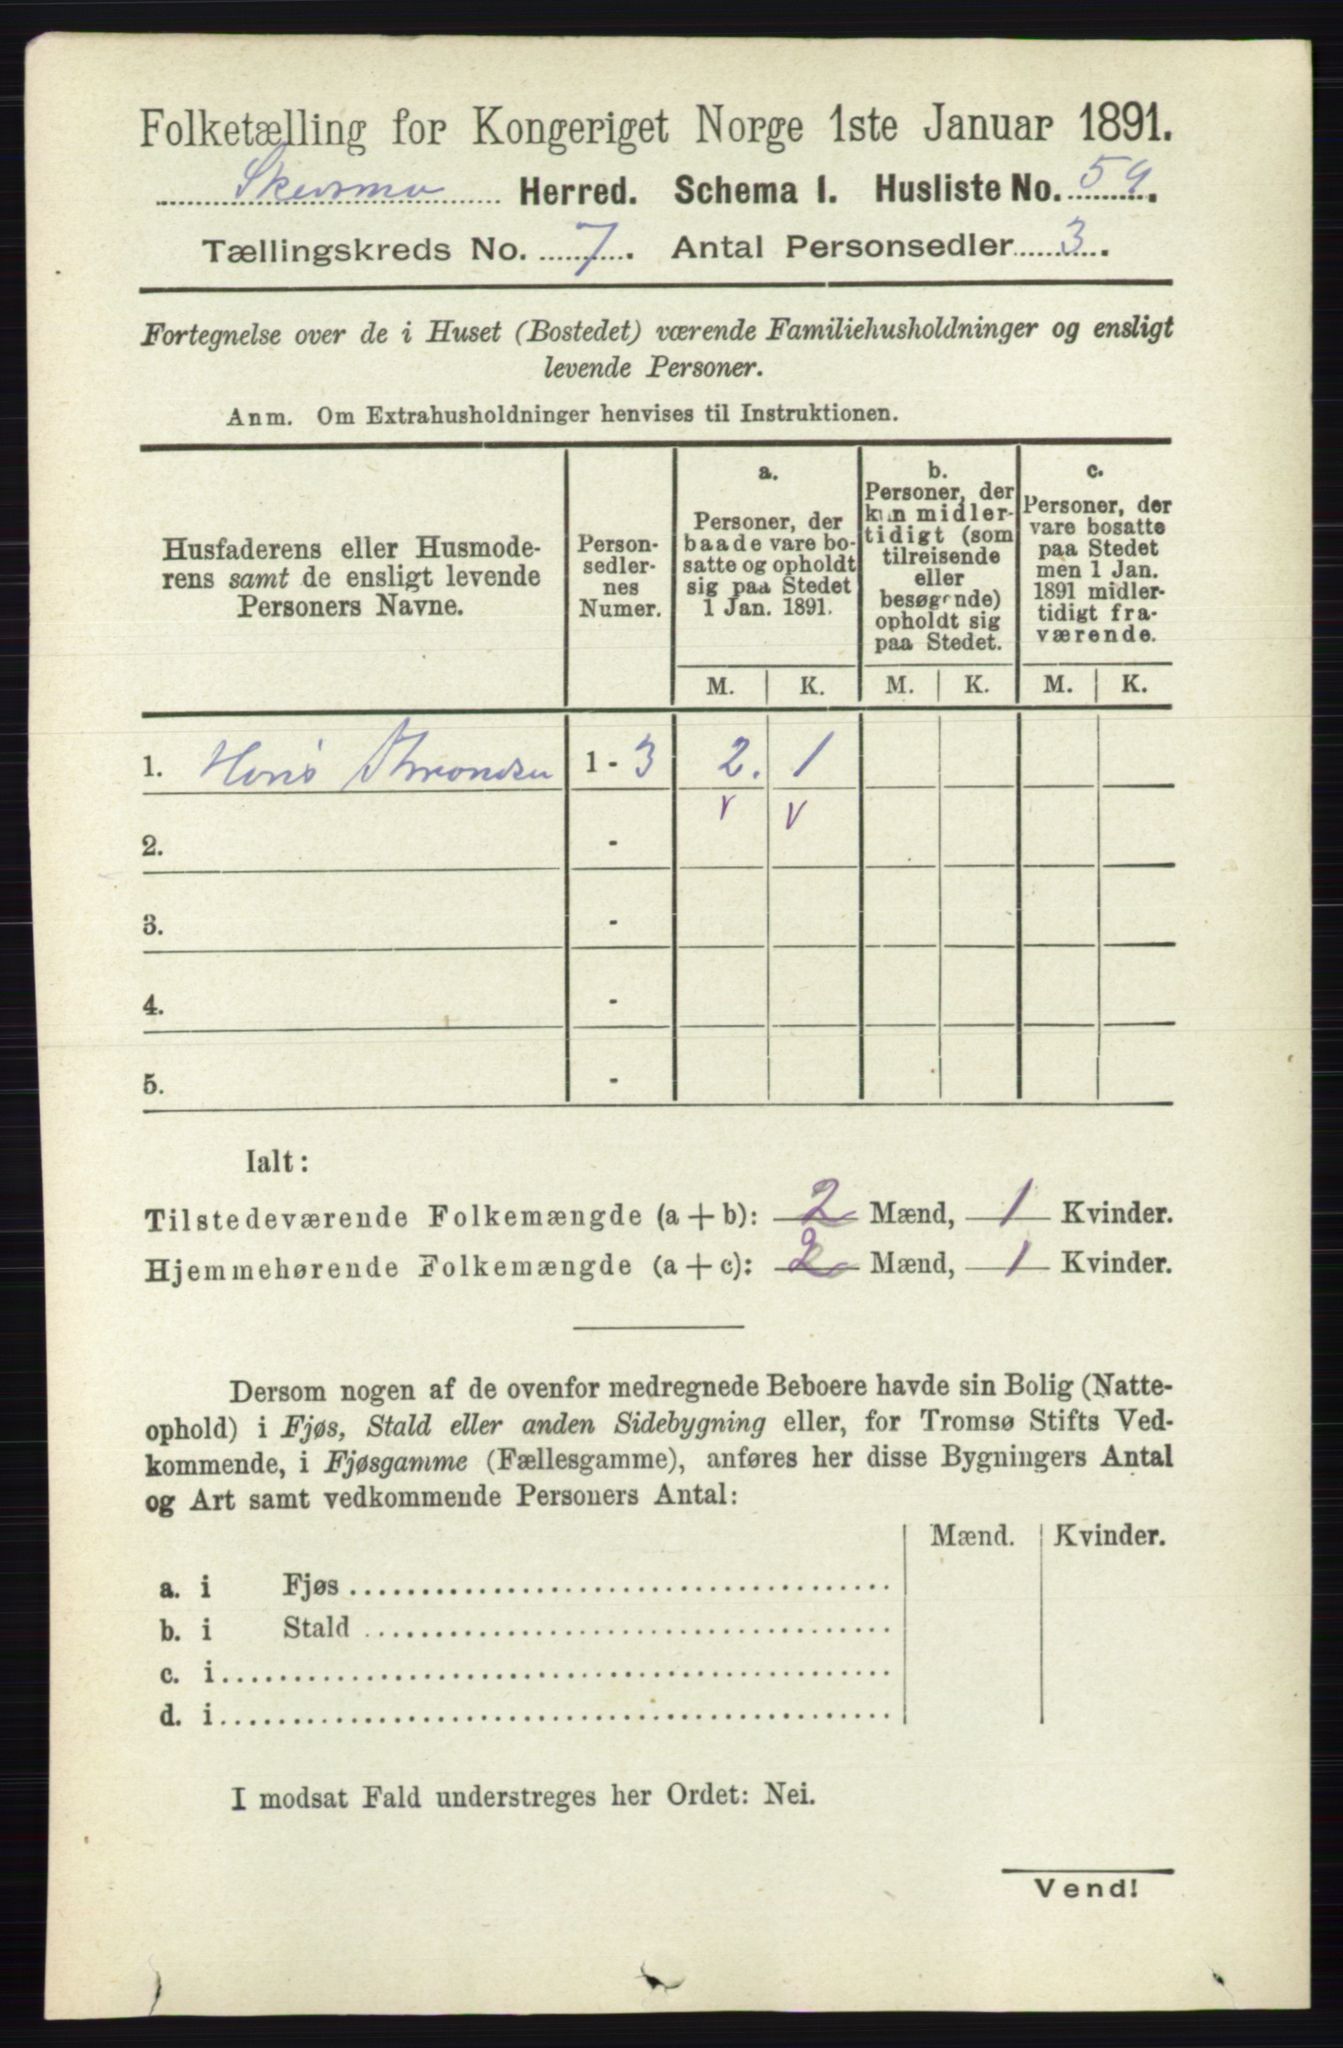 Folketælling for Kongeriget Norge 1ste Januar 1891.
Skedsmo Herred. Schema I. Husliste No. 59.
Tællingskreds No. 7. Antal Personsedler 3.
Fortegnelse over de i Huset (Bostedet) værende Familiehusholdninger og ensligt
levende Personer.
Anm. Om Extrahusholdninger henvises til Instruktionen.
Husfaderens eller Husmode-
rens samt de ensligt levende
Personers Navne.
Person-
sedler-
nes
Numer.
a.
Personer, der
baade vare bo-
satte og opholdt
sig paa Stedet
1 Jan. 1891.
b.
Personer, der
kun midler-
tidigt (som
tilreisende
eller
besøgende)
opholdt sig
paa Stedet.
c.
Personer, der
vare bosatte
paa Stedet
men 1 Jan.
1891 midler-
tidigt fra-
værende.
M. K. M. K. M. K.
1. Throndsen 1 - 3 2. 1
v v
2. -
3. -
4. -
5. -
Ialt:
Tilstedeværende Folkemængde (a + b): 2 Mænd, 1 Kvinder.
Hjemmehørende Folkemængde (a + c): 2 Mænd, 1 Kvinder.
Dersom nogen af de ovenfor medregnede Beboere havde sin Bolig (Natte-
ophold) i Fjøs, Stald eller anden Sidebygning eller, for Tromsø Stifts Ved-
kommende, i Fjøsgamme (Fællesgamme), anføres her disse Bygningers Antal
og Art samt vedkommende Personers Antal:
Mænd. Kvinder.
a. i Fjøs
b. i Stald
c. i
d. i
I modsat Fald understreges her Ordet: Nei.
Vend!